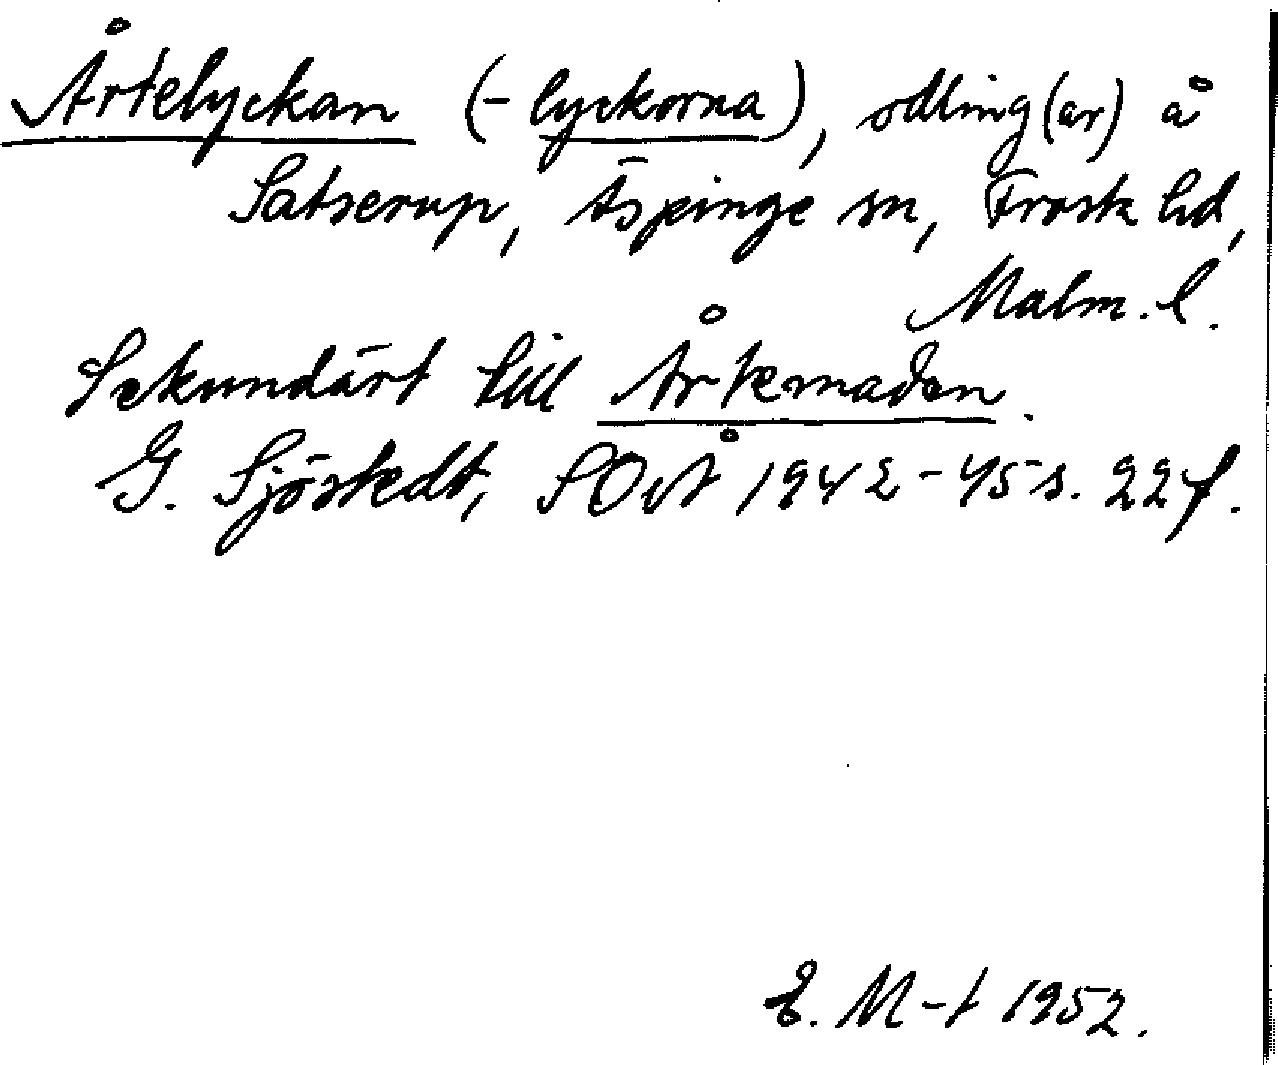 Årtelyckan (-lyckorna), odling(ar) å
Satserup, Äspinge sn, Frosk hd,
Malm. l.
Sekundärt till Årtemaden.
G. Sjöstedt, SOÅ 1942-45 s. 22 f.
E. M-t 1952.